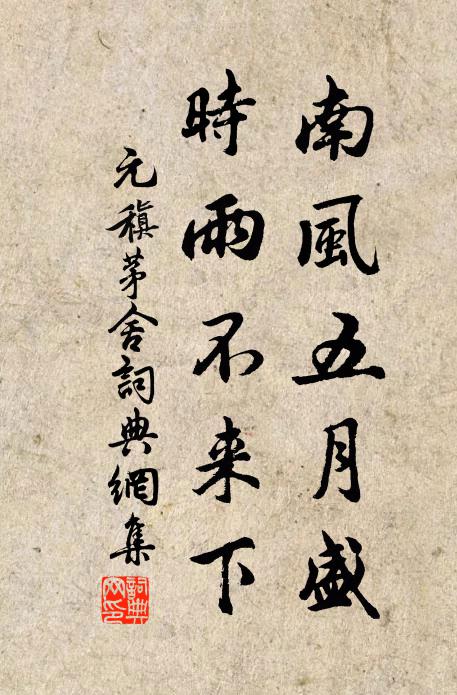 南風五月盛
時雨不来下
元稹茅舍詞典網集
詞典
网印